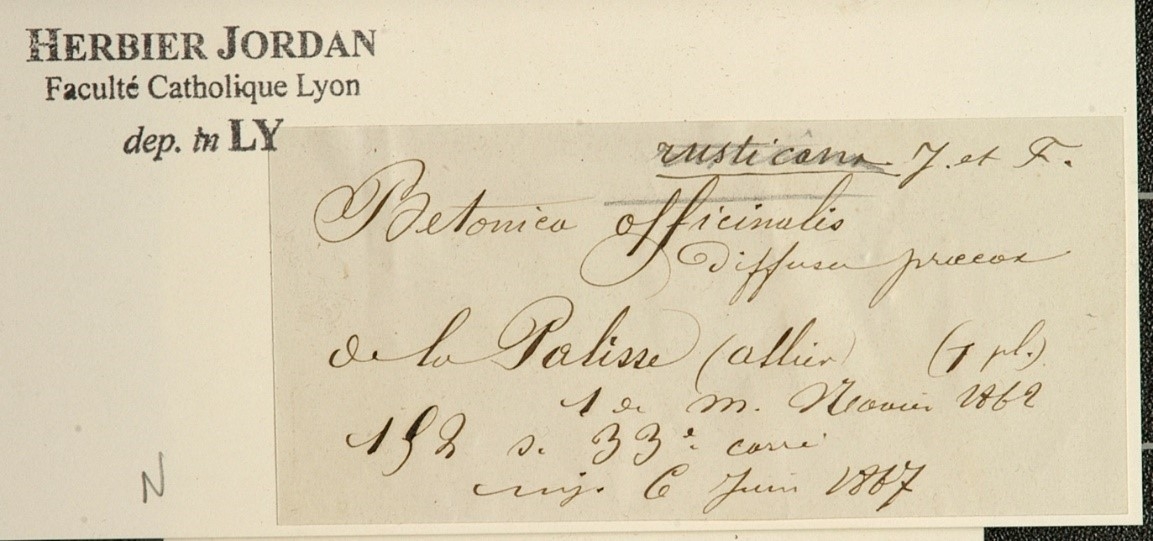 HERBIER JORDAN
Faculté Catholique Lyon
dep. in LY
rusticana J. et F.
Betonica officinalis
diffusa præcox
de la Palisse (allier) (1 pl.)
1 de m. 1862
152 s. 33e carré
6 Juin 1867
N